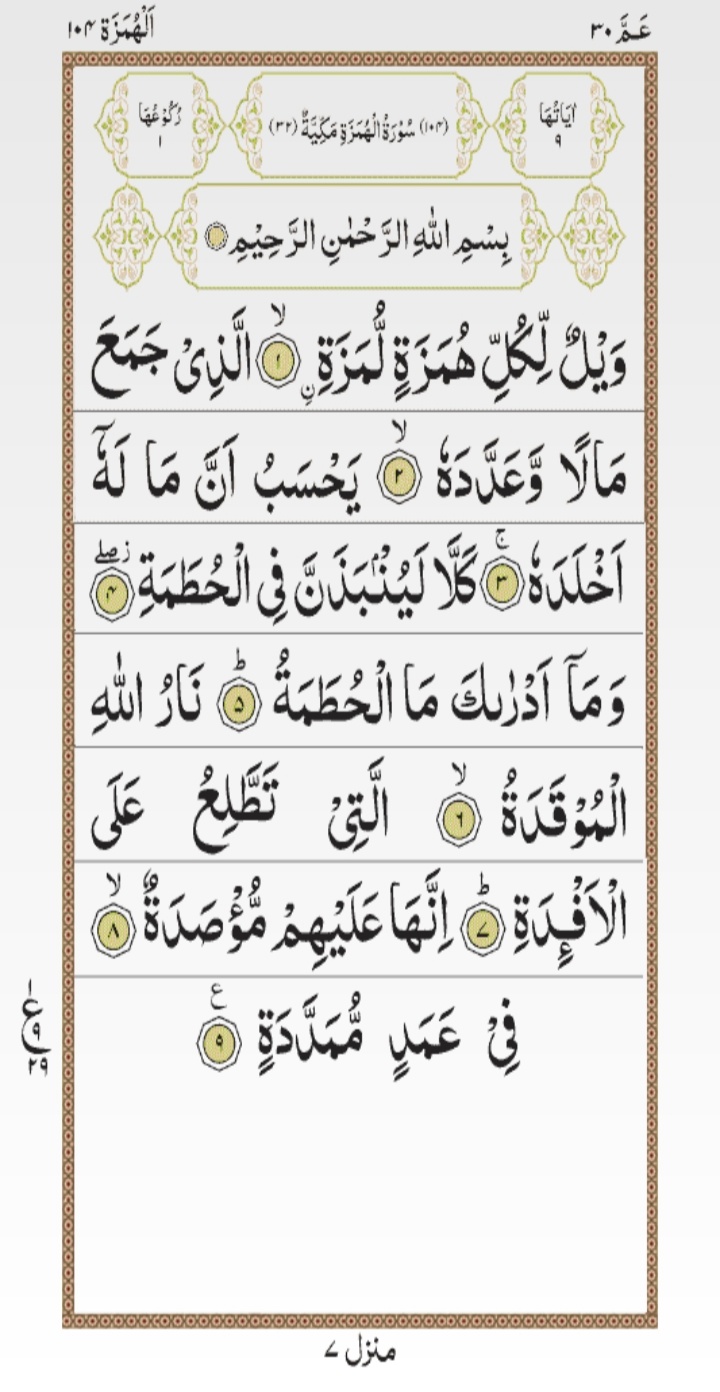 عَمَّ ۳۰ اَلْهُمَزَة ۱۰۴
اٰيَاتُهَا ۹ (۱۰۴) سُوْرَةُ الْهُمَزَةِ مَكِّيَّةٌ (۳۲) رُكُوْعُهَا ۱
بِسْمِ اللّٰهِ الرَّحْمٰنِ الرَّحِيْمِ
وَيْلٌ لِّكُلِّ هُمَزَةٍ لُّمَزَةِ ۙ ۱ ۨ الَّذِيْ جَمَعَ
مَالًا وَّعَدَّدَهٗ ۙ ۲ يَحْسَبُ اَنَّ مَا لَهٗۤ
اَخْلَدَهٗ ۚ ۳ كَلَّا لَيُنْۢبَذَنَّ فِي الْحُطَمَةِ زۖ ۴
وَمَاۤ اَدْرٰىكَ مَا الْحُطَمَةُ ؕ ۵ نَارُ اللّٰهِ
الْمُوْقَدَةُ ۙ ۶ الَّتِيْ تَطَّلِعُ عَلَى
الْاَفْـِٕدَةِ ؕ ۷ اِنَّهَا عَلَيْهِمْ مُّؤْصَدَةٌ ۙ ۸
فِيْ عَمَدٍ مُّمَدَّدَةٍ ع ۹
ع ۱ ۹ ۲۹
منزل ۷